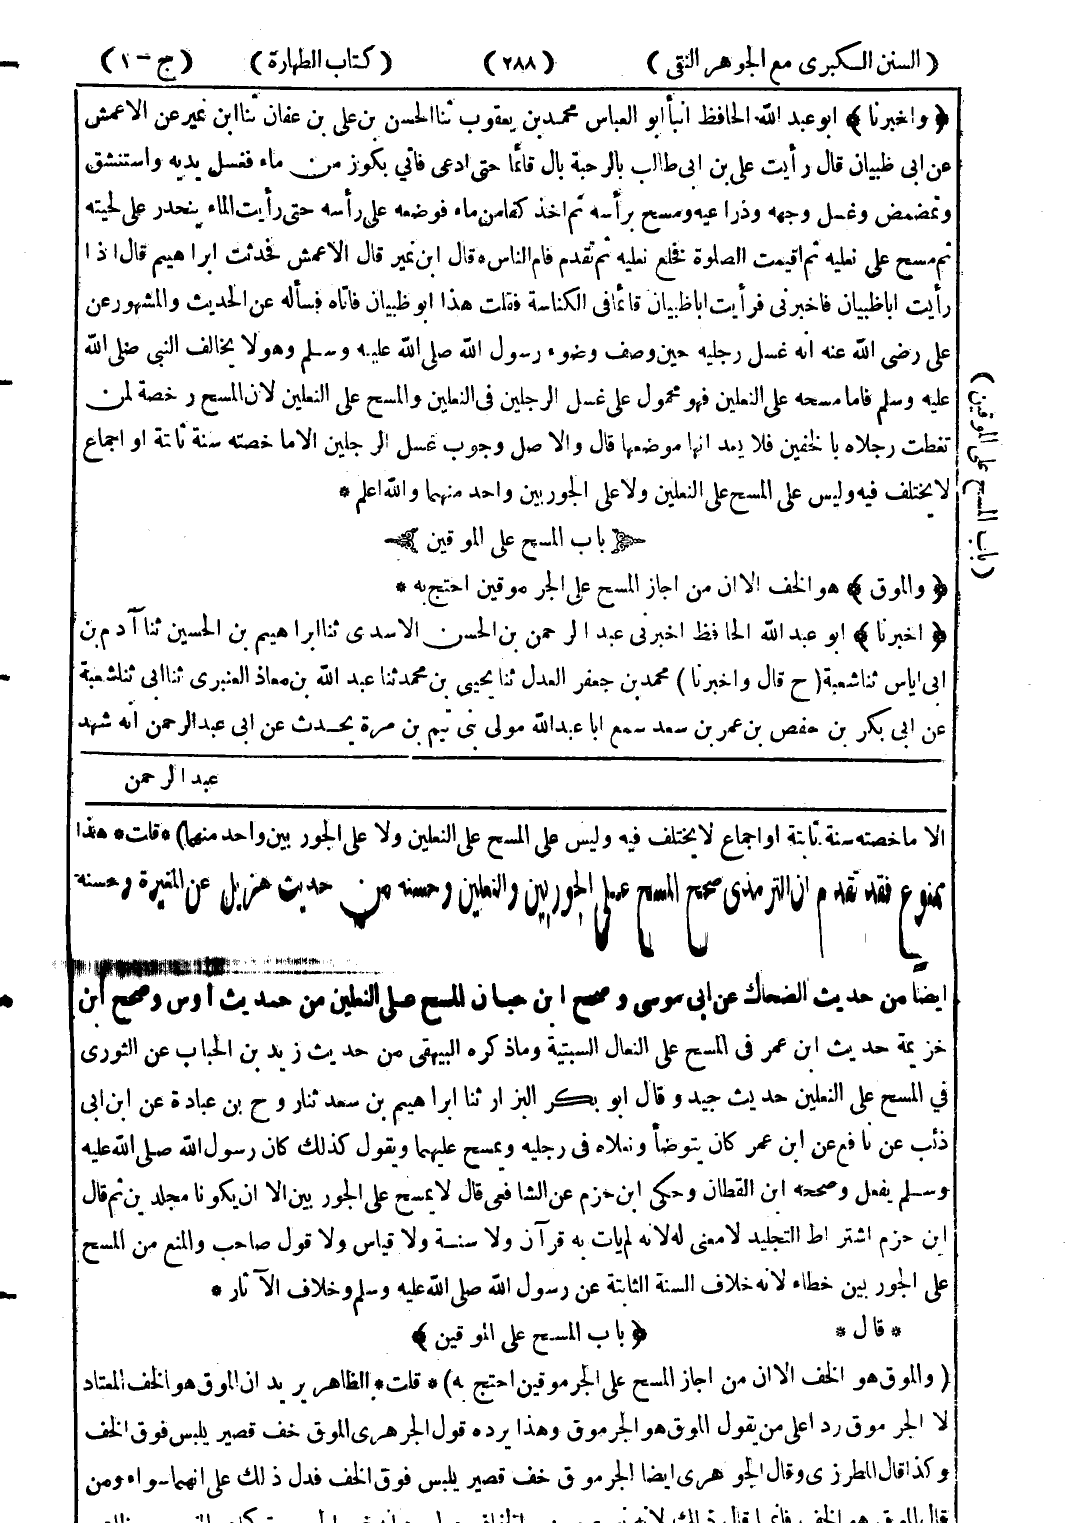 ( السنن الكبرى مع الجوهر النقى ) ( ٢٨٨ ) ( كتاب الطهارة ) ( ج - ١ )
﴿ واخبرنا ﴾ ابو عبد الله الحافظ انبأ ابو العباس محمد بن يعقوب ثنا الحسن بن على بن عفان ثنا ابن نمير عن الاعمش
عن ابى ظبيان قال رأيت على بن ابى طالب بالرحبة بال قائما حتى ادعى فاتي بكوز من ماء فغسل يديه واستنشق
وتمضمض وغسل وجهه وذراعيه ومسح برأسه ثم اخذ كفا من ماء فوضعه على رأسه حتى رأيت الماء ينحدر على لحيته
ثم مسح على نعليه ثم اقيمت الصلوة فخلع نعليه ثم تقدم فام الناس ه قال ابن نمير قال الاعمش فحدثت ابراهيم قال اذا
رأيت اباظبيان فاخبرنى فرأيت اباظبيان قائما فى الكناسة فقلت هذا ابو ظبيان فاتاه فسأله عن الحديث والمشهور عن
على رضى الله عنه انه غسل رجليه حين وصف وضوء رسول الله صلى الله عليه وسلم وهو لا يخالف النبى صلى الله
عليه وسلم فاما مسحه على النعلين فهو محمول على غسل الرجلين فى النعلين والمسح على النعلين لان المسح رخصة لمن
تغطت رجلاه بالخفين فلا يعد انها موضعها قال والاصل وجوب غسل الرجلين الاما خصته سنة ثابتة او اجماع
لا يختلف فيه وليس على المسح على النعلين ولا على الجوربين واحد منهما والله اعلم *
باب المسح على الموقين
﴿ والموق ﴾ هو الخف الا ان من اجاز المسح على الجرموقين احتج به *
﴿ اخبرنا ﴾ ابو عبد الله الحافظ اخبرنى عبد الرحمن بن الحسن الاسدى ثنا ابراهيم بن الحسين ثنا آدم بن
ابى اياس ثنا شعبة ( ح قال واخبرنا ) محمد بن جعفر العدل ثنا يحيى بن محمد ثنا عبد الله بن معاذ العنبرى ثنا ابى ثنا شعبة
عن ابى بكر بن حفص بن عمر بن سعد سمع ابا عبد الله مولى بنى تيم بن مرة يحدث عن ابى عبد الرحمن انه شهد
عبد الرحمن
( باب المسح على الموقين )
الا ما خصته سنة ثابتة او اجماع لا يختلف فيه وليس على المسح على النعلين ولا على الجوربين واحد منهما ) * قلت * هذا
ممنوع فقد تقدم ان الترمذى صحح المسح على الجوربين والنعلين وحسنه من حديث هزيل عن المغيرة وحسنه
ايضا من حديث الضحاك عن ابى موسى وصحح ابن حبان المسح على النعلين من حديث اوس وصحح ابن
خزيمة حديث ابن عمر فى المسح على النعال السبتية وما ذكره البيهقى من حديث زيد بن الحباب عن الثورى
في المسح على النعلين حديث جيد وقال ابو بكر البزار ثنا ابراهيم بن سعد ثنا روح بن عبادة عن ابن ابى
ذئب عن نافع عن ابن عمر كان يتوضأ ونعلاه فى رجليه ويمسح عليهما ويقول كذلك كان رسول الله صلى الله عليه
وسلم يفعل وصححه ابن القطان وحكى ابن حزم عن الشافعى قال لا يمسح على الجوربين الا ان يكونا مجلدين ثم قال
ابن حزم اشتراط التجليد لا معنى له لانه لم يات به قرآن ولا سنة ولا قياس ولا قول صاحب والمنع من المسح
على الجوربين خطاء لانه خلاف السنة الثابتة عن رسول الله صلى الله عليه وسلم وخلاف الآثار *
* قال * ﴿ باب المسح على الموقين ﴾
( والموق هو الخف الا ان من اجاز المسح على الجرموقين احتج به ) * قلت * الظاهر يريد ان الموق هو الخف المعتاد
لا الجرموق ردا على من يقول الموق هو الجرموق وهذا يرده قول الجوهرى الموق خف قصير يلبس فوق الخف
وكذا قال المطرزى وقال الجوهرى ايضا الجرموق خف قصير يلبس فوق الخف فدل ذلك على انهما سواء ومن
قال الموق هو الخف فانما قال ذلك لانه